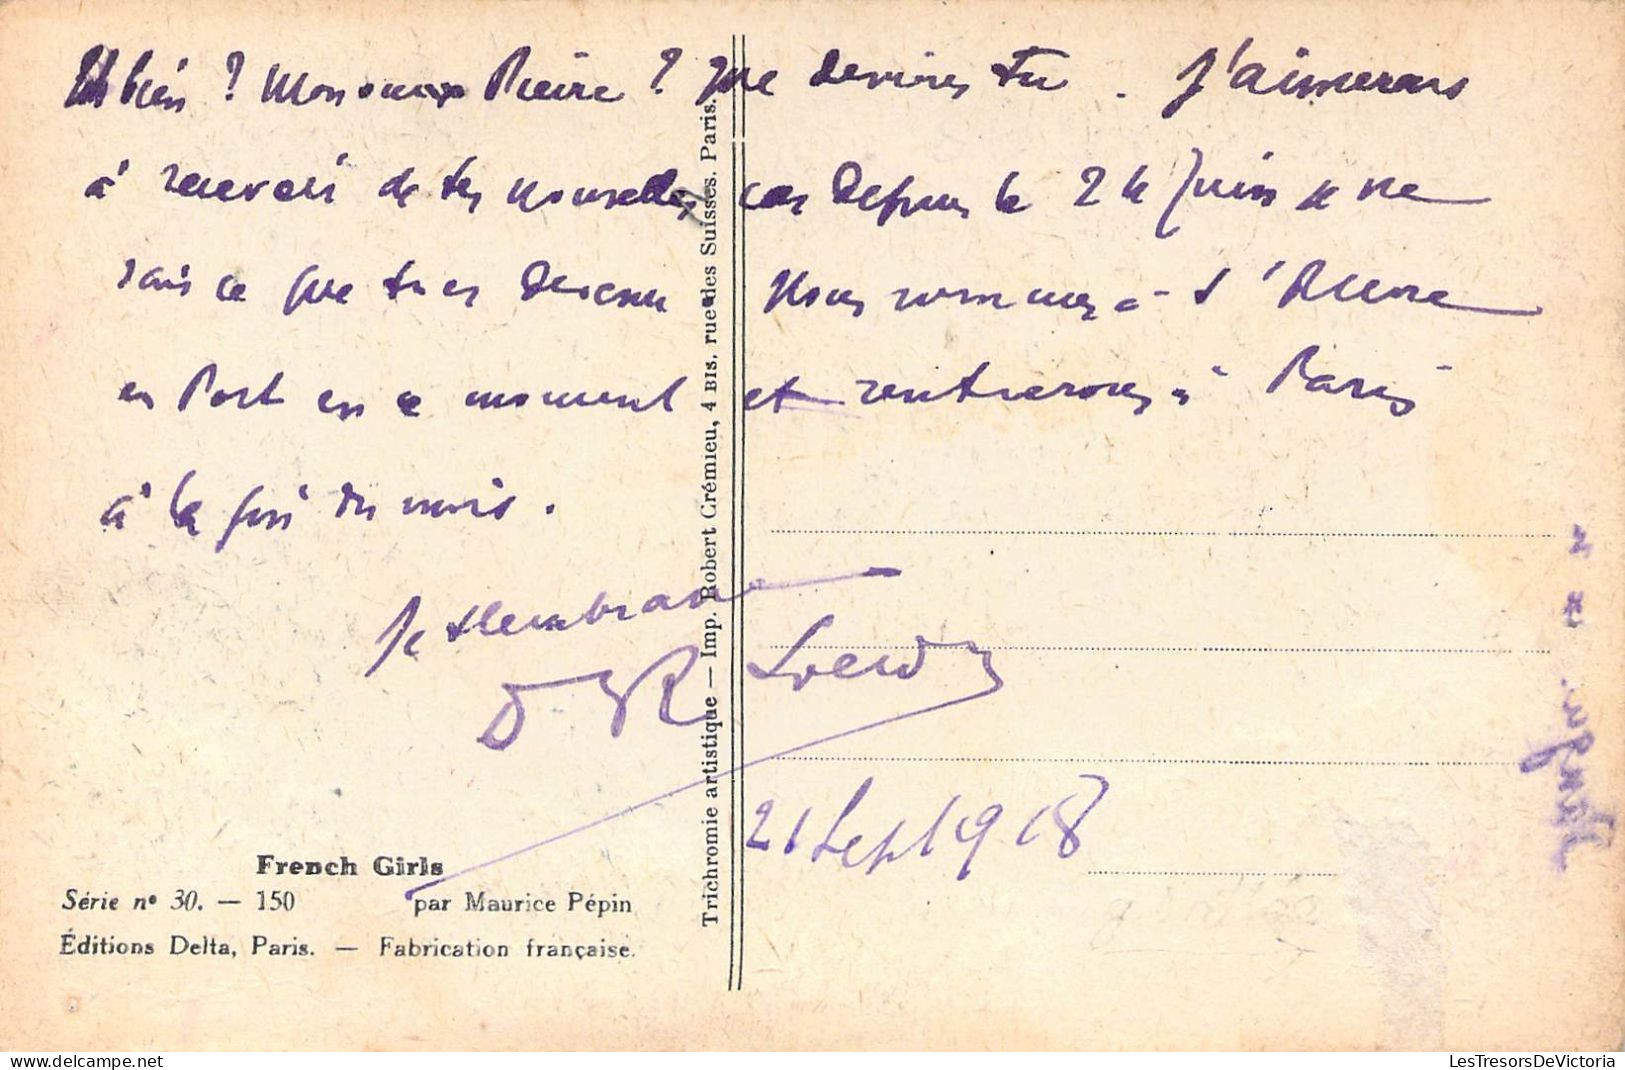 Eh bien ? Mon vieux Pierre ? que deviens tu . J'aimerais
à recevoir de tes nouvelles car depuis le 24 Juin je ne
sais ce que tu es devenu Nous sommes à l'
en Port en ce moment et rentrerons à Paris
à la fin du mois .
Je t'embrasse
21 Sept 1918
French Girls
Série nº 30. — 150 par Maurice Pépin
Éditions Delta, Paris. — Fabrication française.
Trichromie artistique — Imp. Robert Crémieu, 4 BIS, rue des Suisses. Paris.
LesTresorsDeVictoria